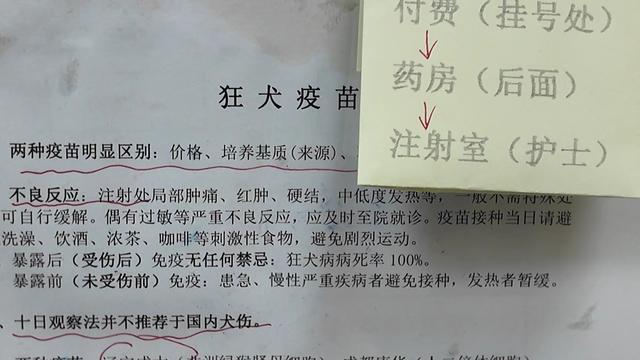 付费（挂号处）
药房（后面）
注射室（护士）
狂犬疫苗
两种疫苗明显区别：价格、培养基质(来源)、
不良反应：注射处局部肿痛、红肿、硬结，中低度发热等，一般不需特殊处
可自行缓解。偶有过敏等严重不良反应，应及时至院就诊。疫苗接种当日请避
洗澡、饮酒、浓茶、咖啡等刺激性食物，避免剧烈运动。
暴露后（受伤后）免疫无任何禁忌：狂犬病病死率100%。
暴露前（未受伤前）免疫：患急、慢性严重疾病者避免接种，发热者暂缓。
、十日观察法并不推荐于国内犬伤。